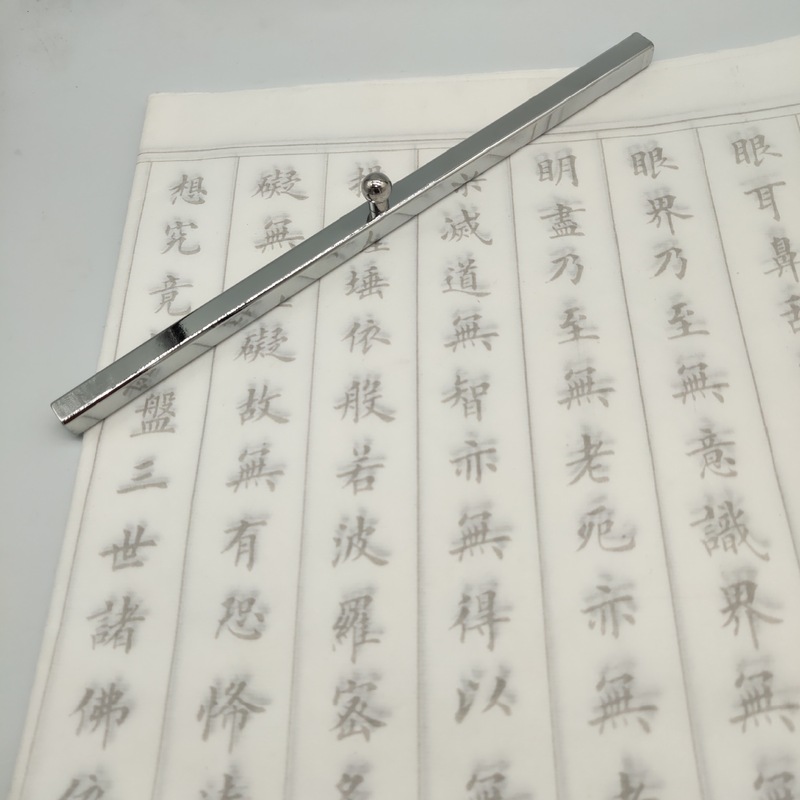 眼耳鼻舌
眼界乃至無意識界無
明盡乃至無老死亦無老
滅道無智亦無得以無
埵依般若波羅蜜多
礙無礙故無有恐怖遠
想究竟盤三世諸佛依